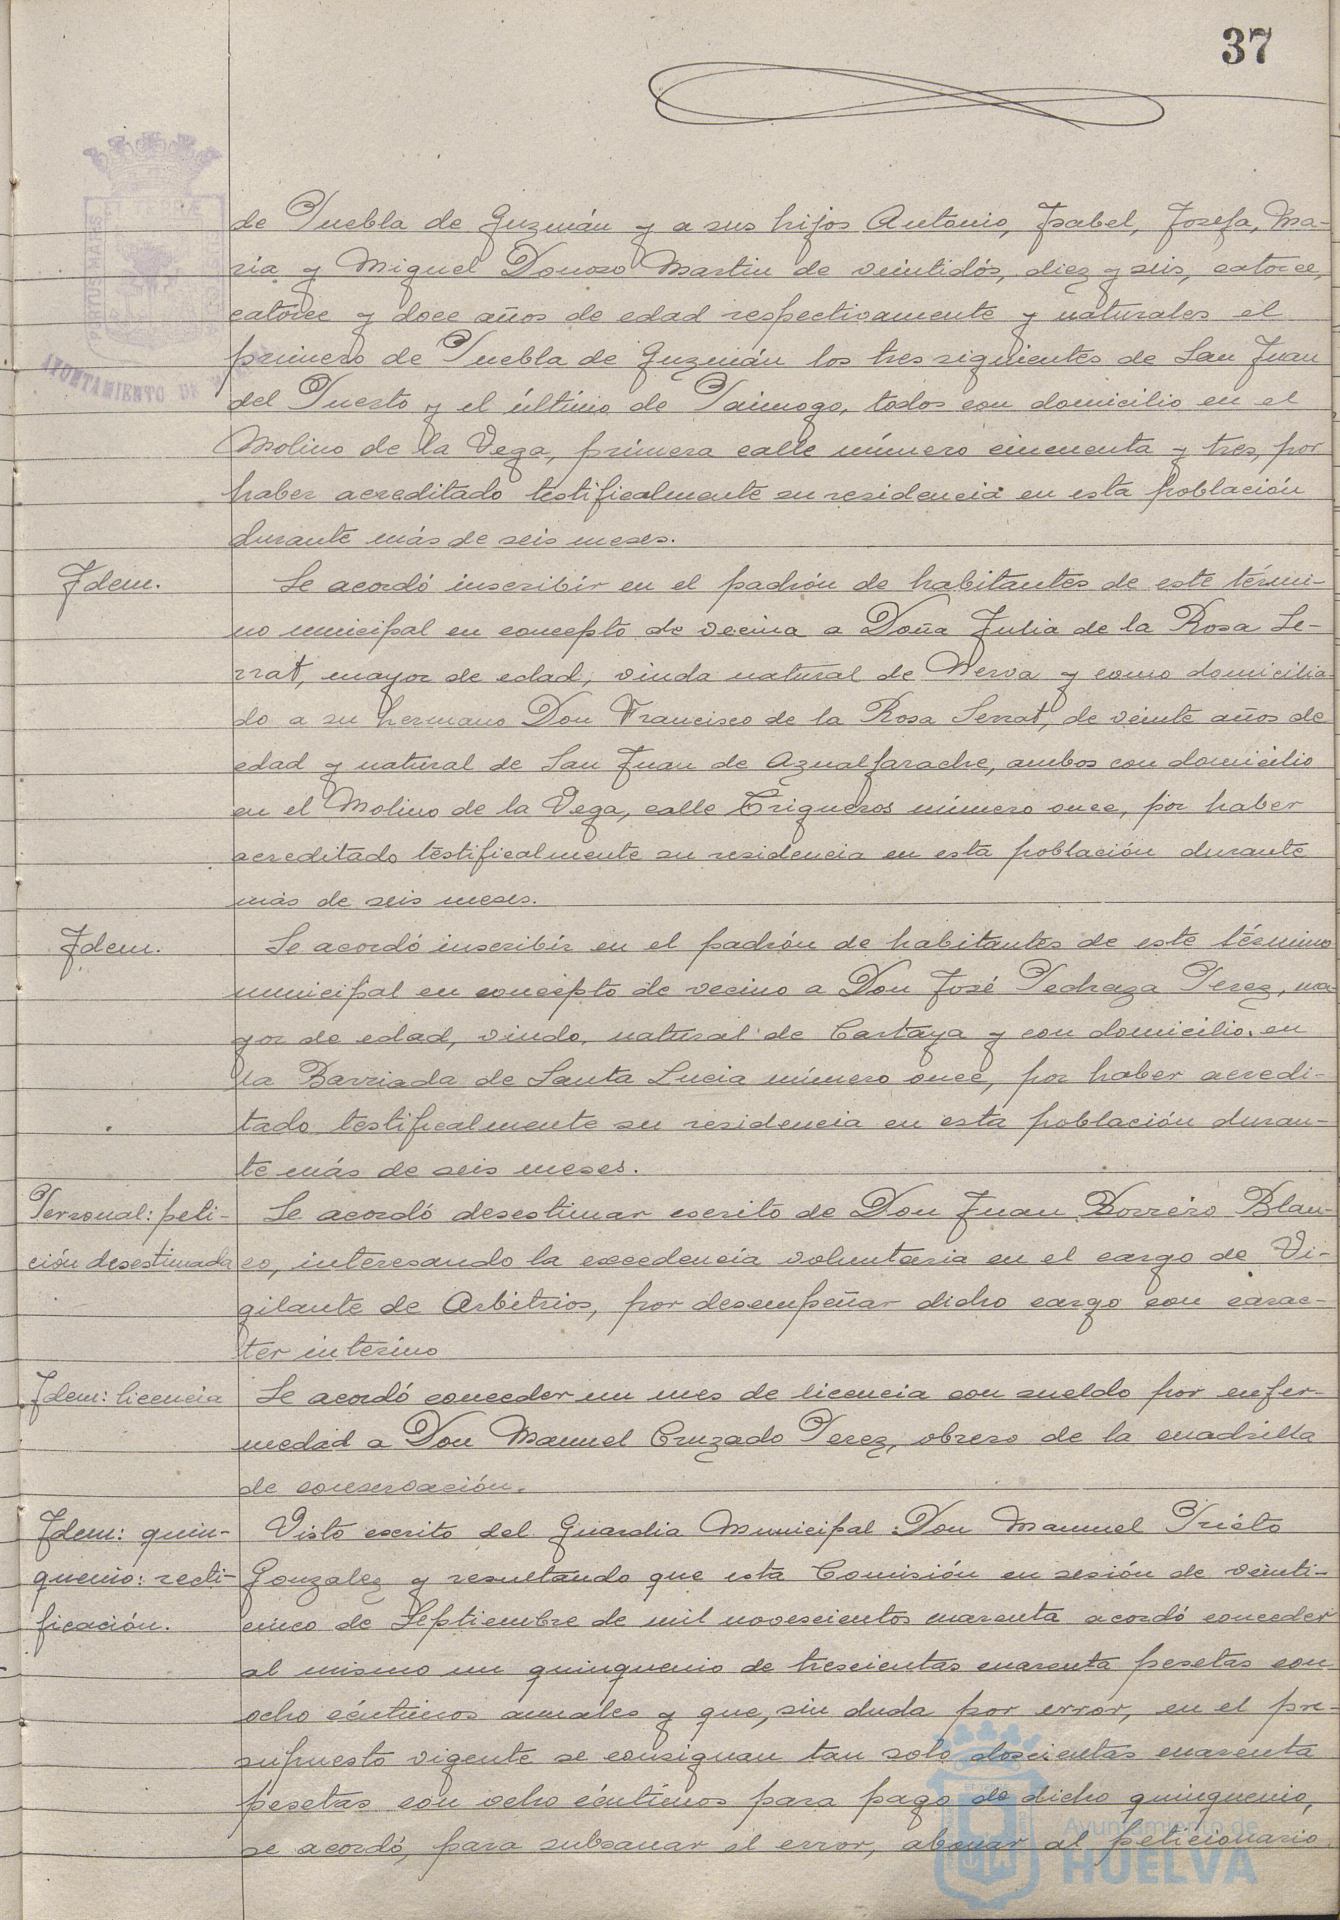 37
PORTUS MARIS ET TERRÆ CUSTODIA
AYUNTAMIENTO DE HUELVA
de Puebla de Guzmán y a sus hijos Antonio, Isabel, Josefa, Ma-
ria y Miguel Donoso Martin de veintidós, diez y seis, catorce,
catorce y doce años de edad respectivamente y naturales el
primero de Puebla de Guzmán los tres siguientes de San Juan
del Puerto y el último de Paimogo, todos con domicilio en el
Molino de la Vega, primera calle número cincuenta y tres, por
haber acreditado testificalmente su residencia en esta población
durante más de seis meses.
Idem.
Se acordó inscribir en el padrón de habitantes de este térmi-
no municipal en concepto de vecina a Doña Julia de la Rosa Se-
rrat, mayor de edad, viuda natural de Nerva y como domicilia-
do a su hermano Don Francisco de la Rosa Serrat, de veinte años de
edad y natural de San Juan de Aznalfarache, ambos con domicilio
en el Molino de la Vega, calle Trigueros número once, por haber
acreditado testificalmente su residencia en esta población durante
más de seis meses.
Idem.
Se acordó inscribir en el padrón de habitantes de este término
municipal en concepto de vecino a Don José Pedraza Perez, ma-
yor de edad, viudo, natural de Cartaya y con domicilio en
la Barriada de Santa Lucia número once, por haber acredi-
tado testificalmente su residencia en esta población duran-
te más de seis meses.
Personal: peti-
ción desestimada
Se acordó desestimar escrito de Don Juan Borrero Blan-
co, interesando la excedencia voluntaria en el cargo de Vi-
gilante de Arbitrios, por desempeñar dicho cargo con carac-
ter interino
Idem: licencia
Se acordó conceder un mes de licencia con sueldo por enfer-
medad a Don Manuel Cruzado Perez, obrero de la cuadrilla
de conservación.
Idem: quin-
quenio: recti-
ficación.
Visto escrito del Guardia Municipal Don Manuel Prieto
Gonzalez y resultando que esta Comisión en sesión de veinti-
cinco de Septiembre de mil novescientos cuarenta acordó conceder
al mismo un quinquenio de trescientas cuarenta pesetas con
ocho céntimos anuales y que, sin duda por error, en el pre-
supuesto vigente se consignan tan solo doscientas cuarenta
pesetas con ocho céntimos para pago de dicho quinquenio,
se acordó, para subsanar el error, abonar al peticionario
Ayuntamiento de
HUELVA